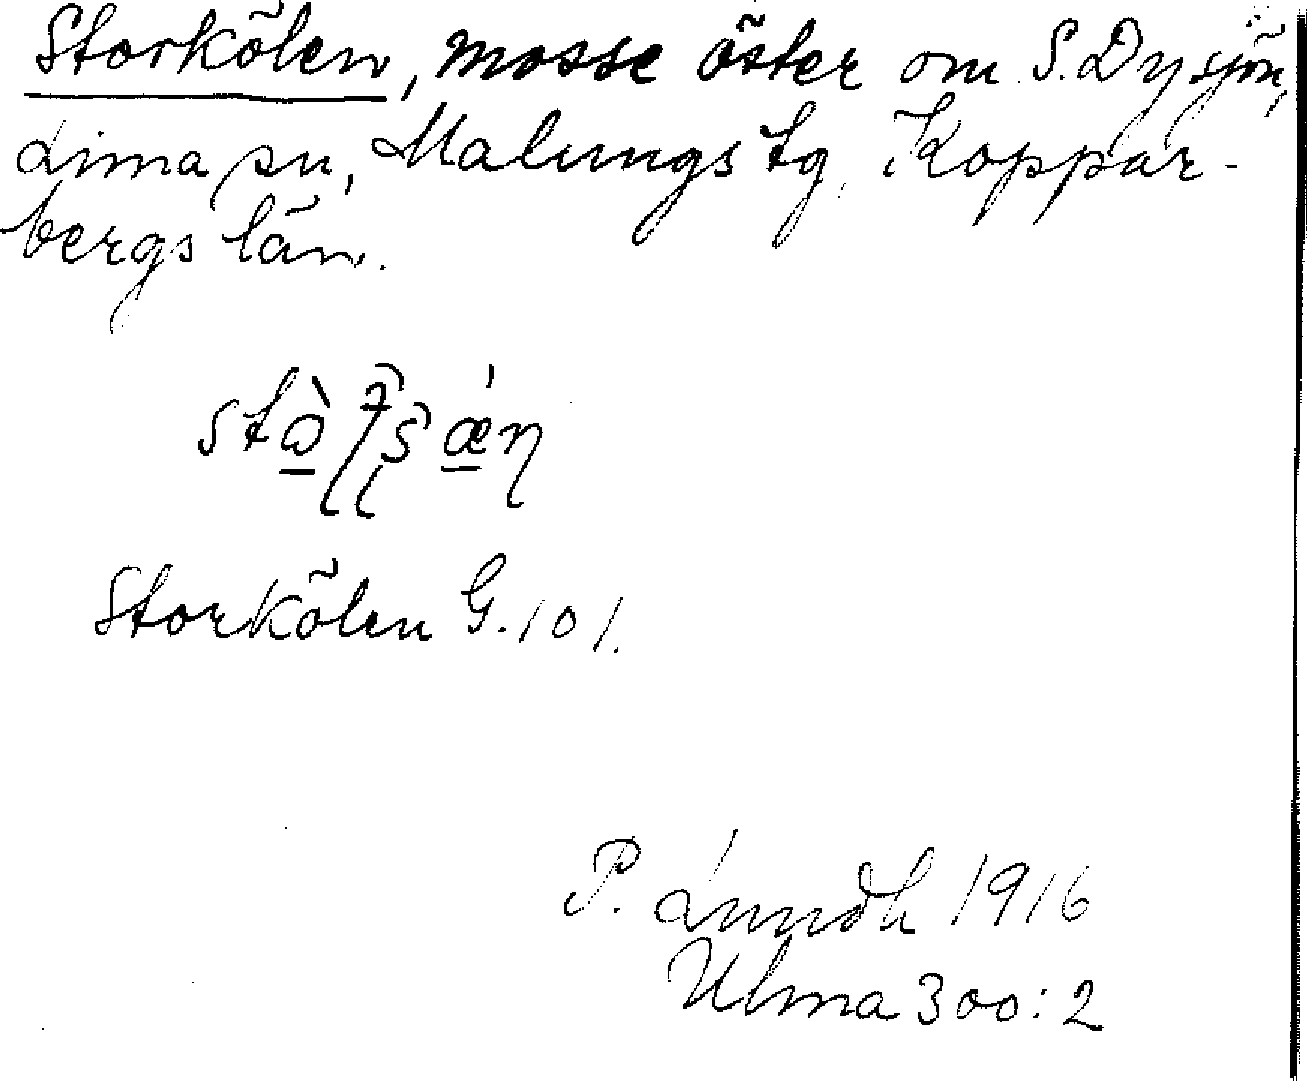 Storkölen, mosse öster om S. Dysjön,
Lima sn, Malungs tg, Koppar-
bergs län.
Storkölen G. 101.
P. Lundh 1916
Ulma 300:2